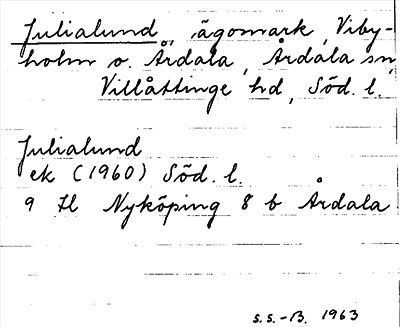 Julialund, ägomark, Viby-
holm o. Årdala, Årdala sn,
Villåttinge hd, Söd. l.
Julialund
ek (1960) Söd. l.
9 H Nyköping 8 b Årdala
S.S.-B. 1963